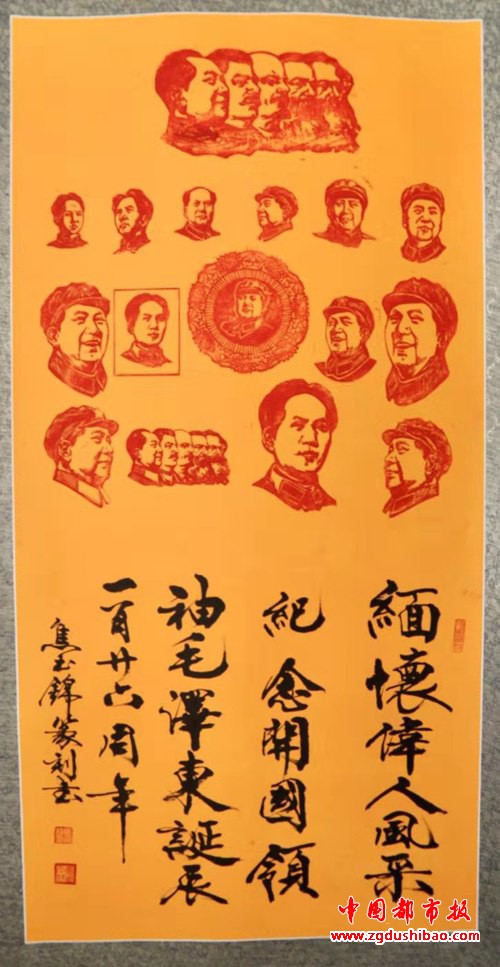 緬懷偉人風采
紀念開國領
袖毛澤東誕辰
一百廿六周年
焦玉錦篆刻书
中国都市报
www.zgdushibao.com